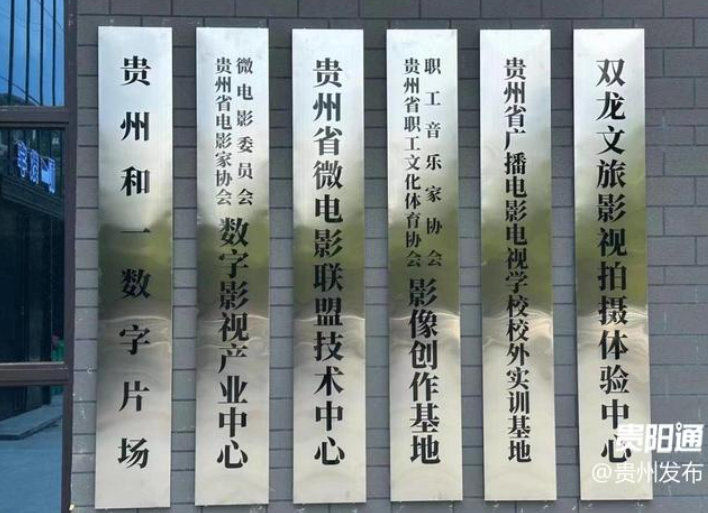 贵州和一数字片场
贵州省电影家协会
微电影委员会
数字影视产业中心
贵州省微电影联盟技术中心
贵州省职工文化体育协会
职工音乐家协会
影像创作基地
贵州省广播电影电视学校校外实训基地
双龙文旅影视拍摄体验中心
贵阳通
@贵州发布